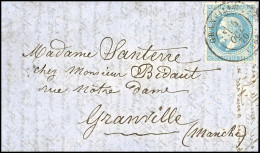 Madame Santerre
chez Monsieur Bedaut
rue notre Dame
Granville
(Manche)